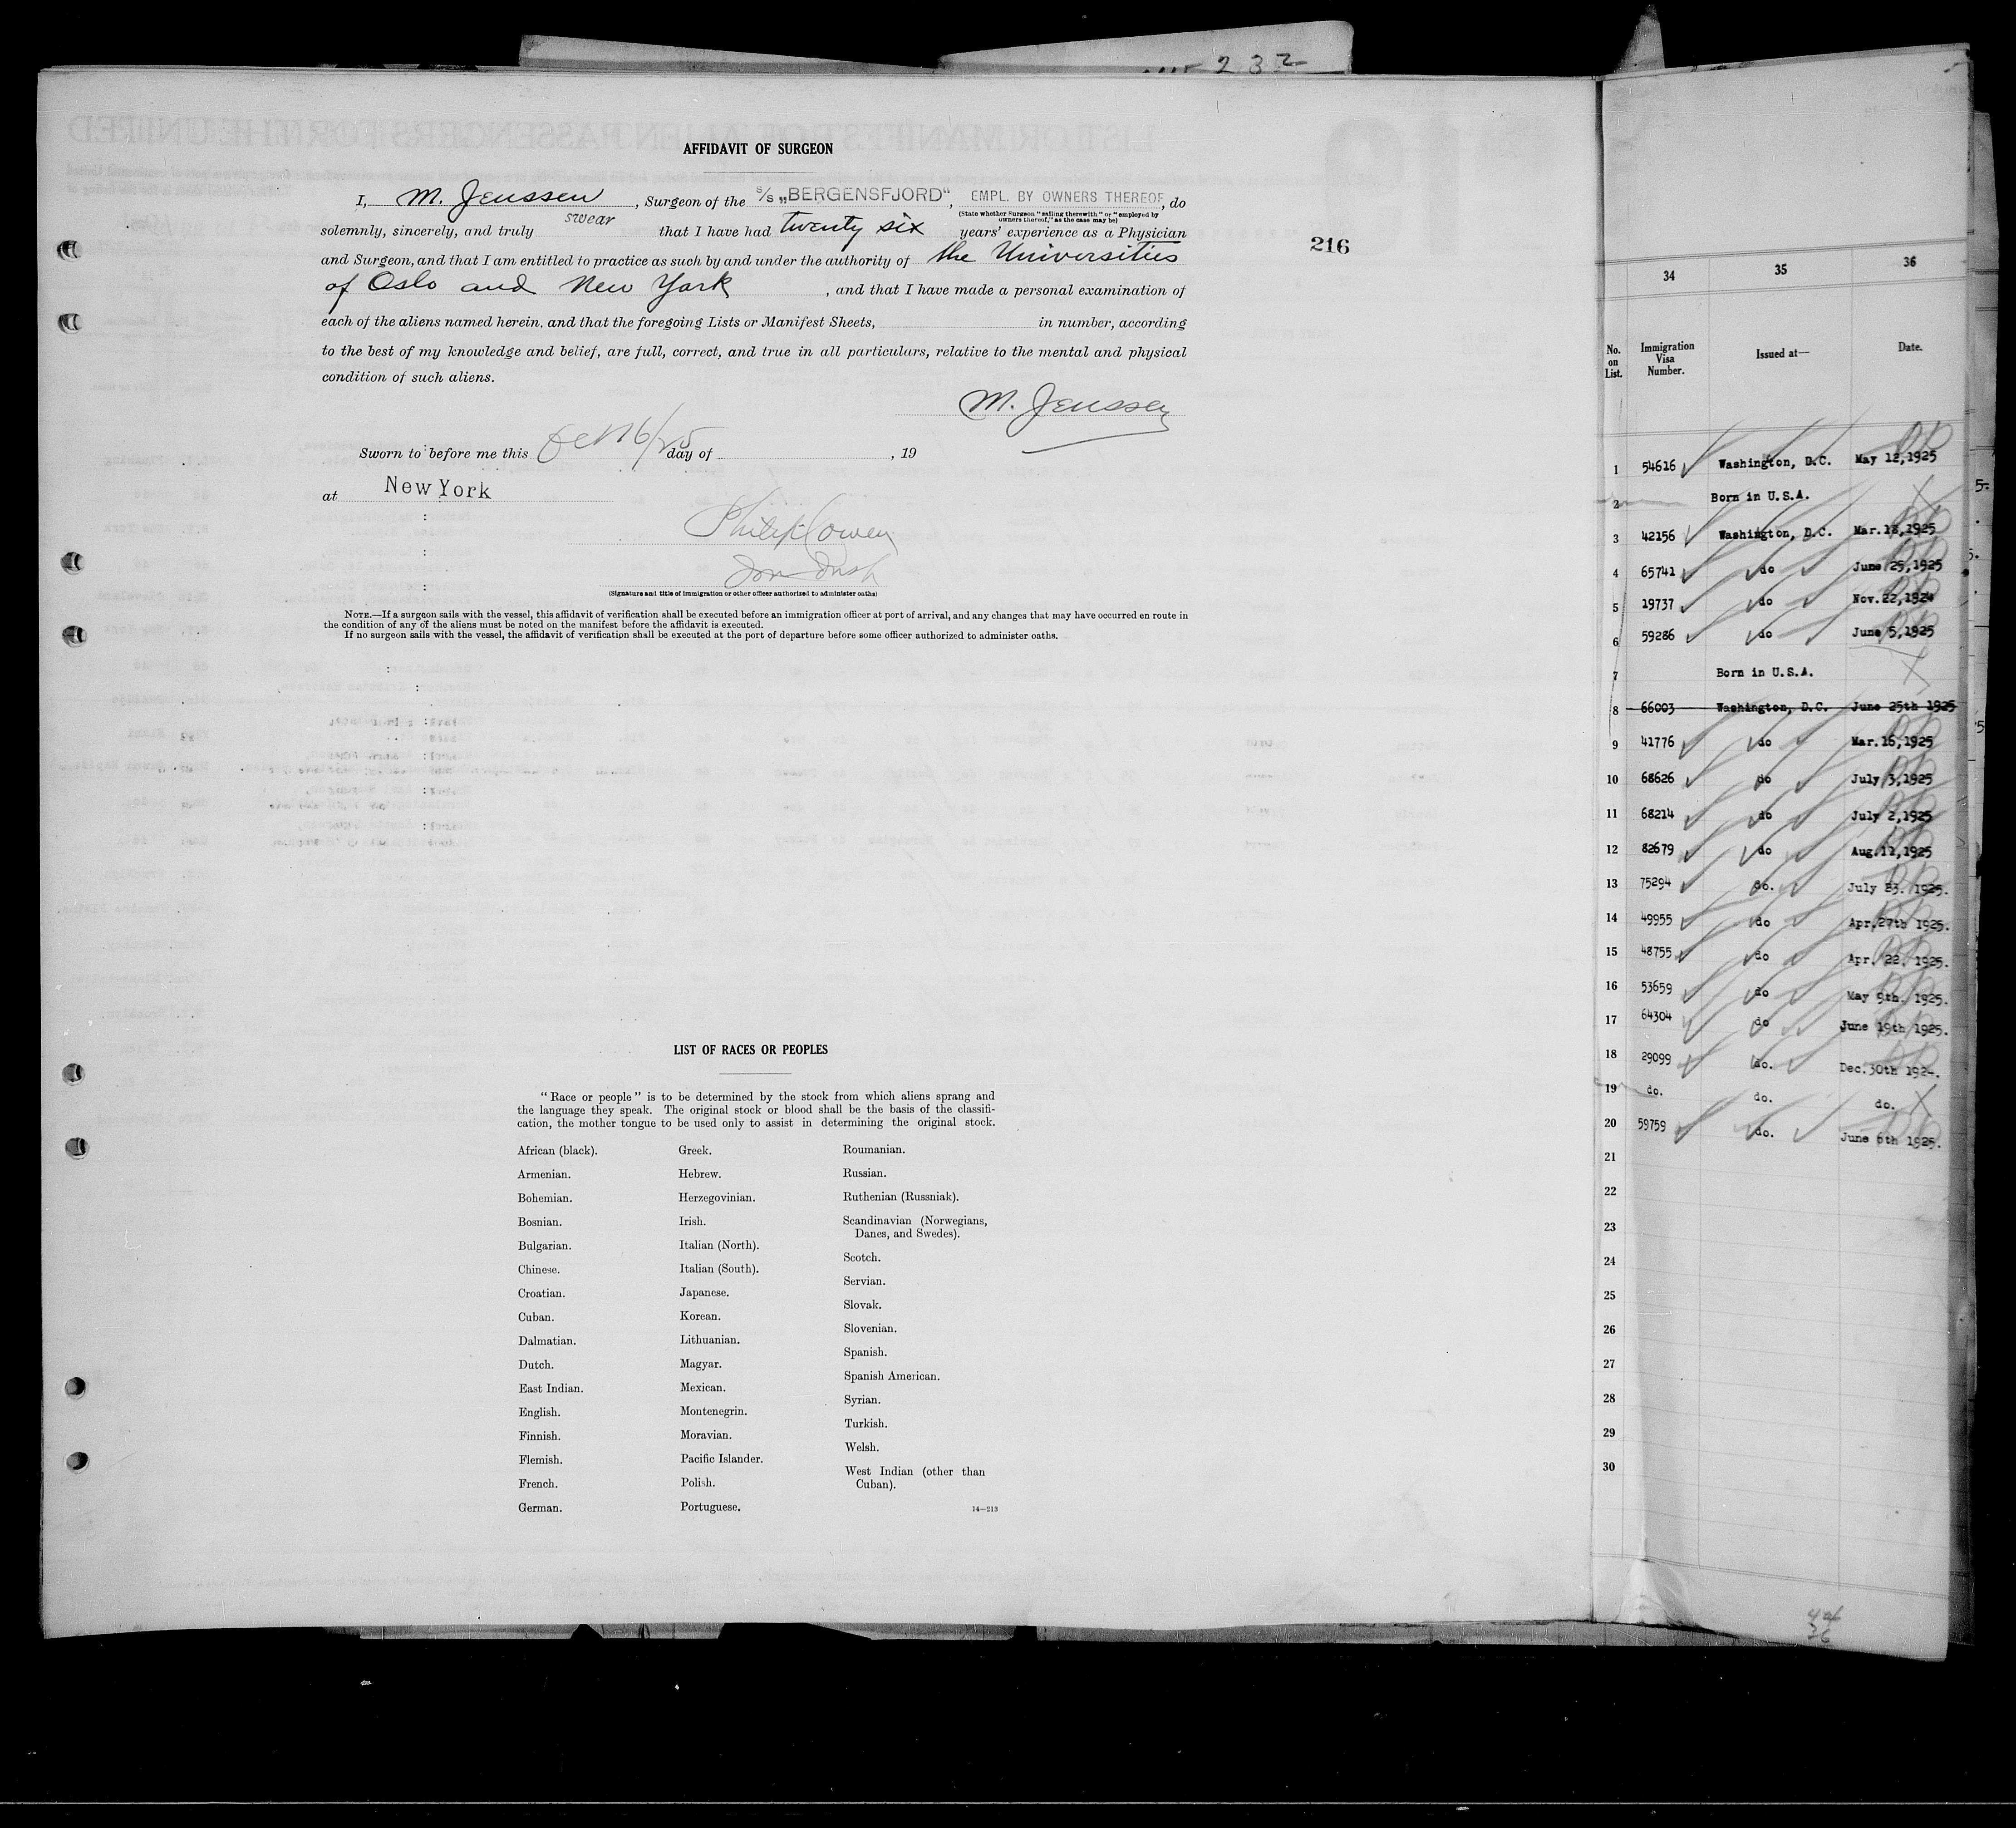 232
AFFIDAVIT OF SURGEON
I, M. Jenssen, Surgeon of the S/S „BERGENSFJORD“, EMPL. BY OWNERS THEREOF, do
(State whether Surgeon "sailing therewith" or "employed by owners thereof," as the case may be)
solemnly, sincerely, and truly swear that I have had twenty six years' experience as a Physician
and Surgeon, and that I am entitled to practice as such by and under the authority of the Universities
of Oslo and New York, and that I have made a personal examination of
each of the aliens named herein, and that the foregoing Lists or Manifest Sheets, in number, according
to the best of my knowledge and belief, are full, correct, and true in all particulars, relative to the mental and physical
condition of such aliens.
M. Jenssen
Sworn to before me this day of , 19
at New York
Philip Cowen
(Signature and title of immigration or other officer authorized to administer oaths)
NOTE.—If a surgeon sails with the vessel, this affidavit of verification shall be executed before an immigration officer at port of arrival, and any changes that may have occurred en route in
the condition of any of the aliens must be noted on the manifest before the affidavit is executed.
If no surgeon sails with the vessel, the affidavit of verification shall be executed at the port of departure before some officer authorized to administer oaths.
216
LIST OF RACES OR PEOPLES
"Race or people" is to be determined by the stock from which aliens sprang and
the language they speak. The original stock or blood shall be the basis of the classifi-
cation, the mother tongue to be used only to assist in determining the original stock.
African (black).
Armenian.
Bohemian.
Bosnian.
Bulgarian.
Chinese.
Croatian.
Cuban.
Dalmatian.
Dutch.
East Indian.
English.
Finnish.
Flemish.
French.
German.
Greek.
Hebrew.
Herzegovinian.
Irish.
Italian (North).
Italian (South).
Japanese.
Korean.
Lithuanian.
Magyar.
Mexican.
Montenegrin.
Moravian.
Pacific Islander.
Polish.
Portuguese.
Roumanian.
Russian.
Ruthenian (Russniak).
Scandinavian (Norwegians,
Danes, and Swedes).
Scotch.
Servian.
Slovak.
Slovenian.
Spanish.
Spanish American.
Syrian.
Turkish.
Welsh.
West Indian (other than
Cuban).
14—213
34 35 36
No. on List. Immigration Visa Number. Issued at— Date.
1 54616 Washington, D.C. May 12,1925
2 Born in U.S.A.
3 42156 Washington, D.C. Mar.18,1925
4 65741 do June 25,1925
5 19737 do Nov.22,1924
6 59286 do June 5,1925
7 Born in U.S.A.
8 66003 Washington, D.C. June 25th 1925
9 41776 do Mar.16,1925
10 68626 do July 3,1925
11 68214 do July 2,1925
12 82679 do Aug.11,1925
13 75294 do. July 23. 1925.
14 49955 do Apr.27th 1925.
15 48755 do Apr. 22. 1925.
16 53659 do May 9th. 1925.
17 64304 do June 19th 1925.
18 29099 do. Dec.30th 1924.
19 do. do. do.
20 59759 do. June 6th 1925.
21
22
23
24
25
26
27
28
29
30